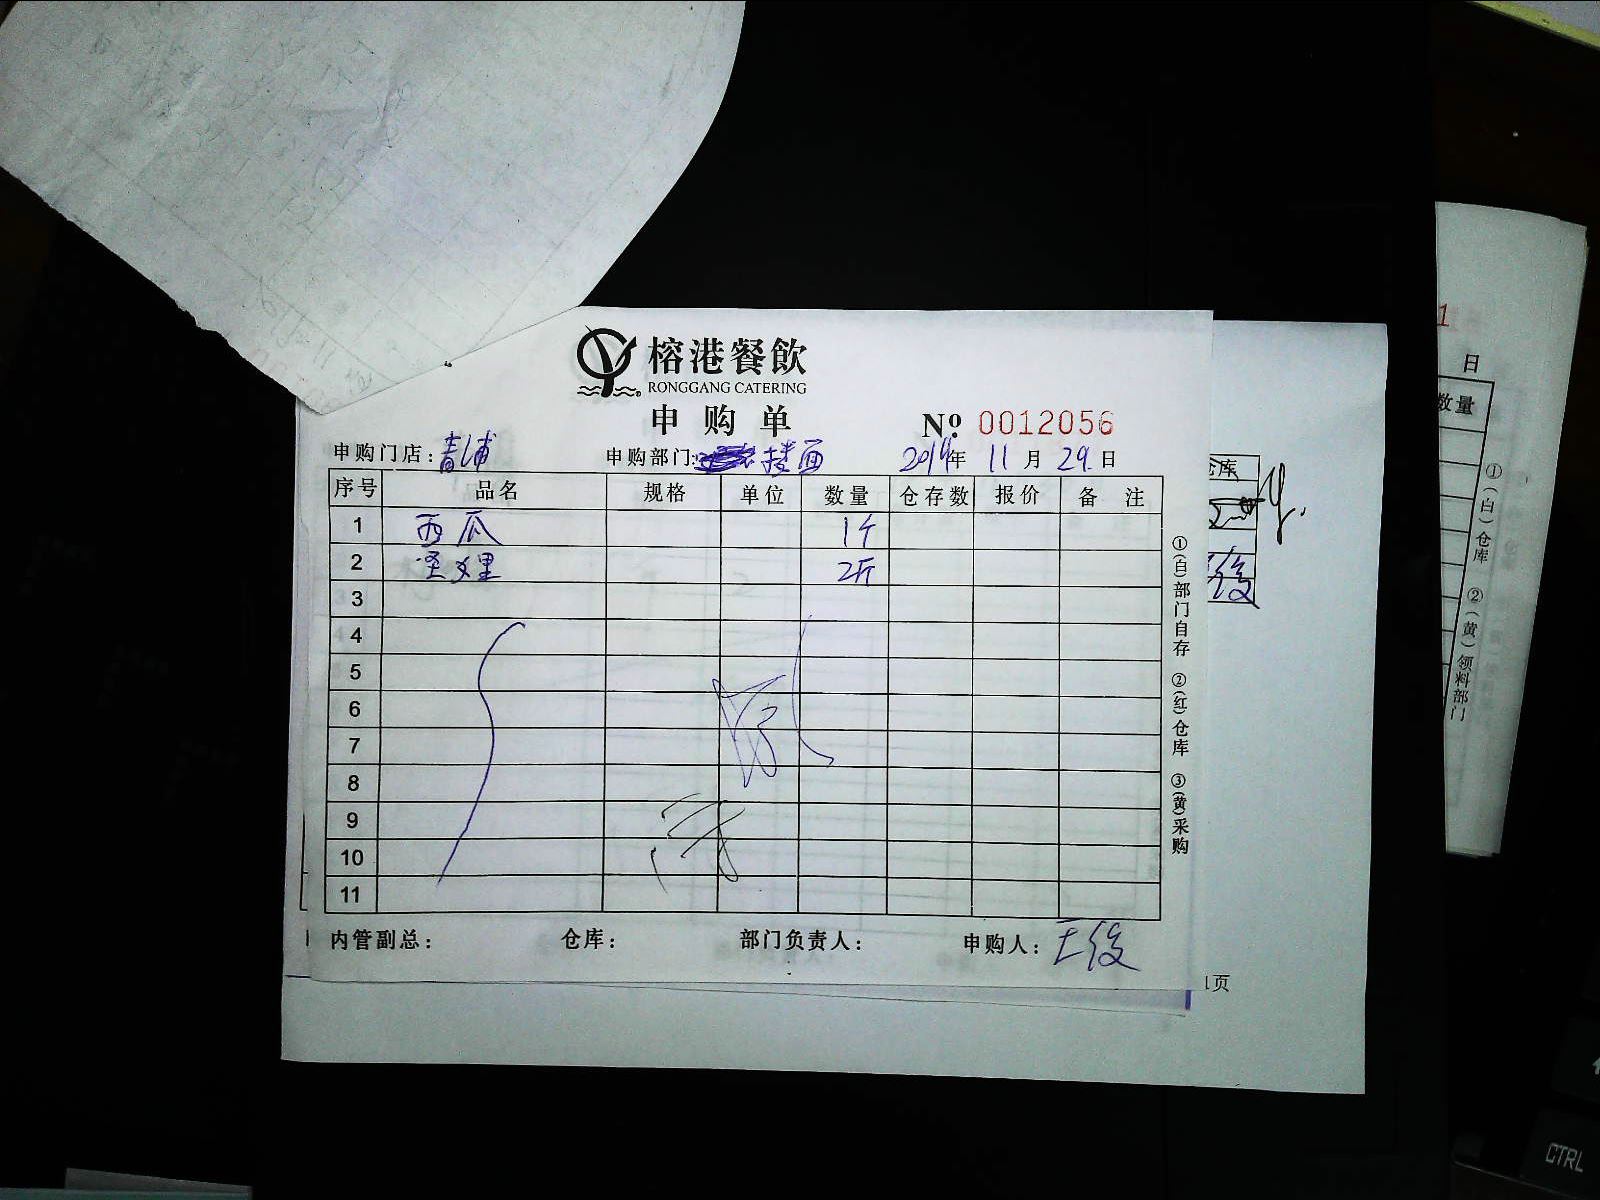 榕港餐飲
RONGGANG CATERING
申购单
Nº 0012056
申购门店：青浦 申购部门：楼面 2014年 11月 29日
序号 品名 规格 单位 数量 仓存数 报价 备 注
1 西瓜 1个
2 圣女里 2斤
3
4
5
6
7
8
9
10
11
内管副总： 仓库： 部门负责人： 申购人：王俊
①(白)部门自存 ②(红)仓库 ③(黄)采购
仓库
俊
1页
1
日
数量
①(白)仓库 ②(黄)领料部门
CTRL